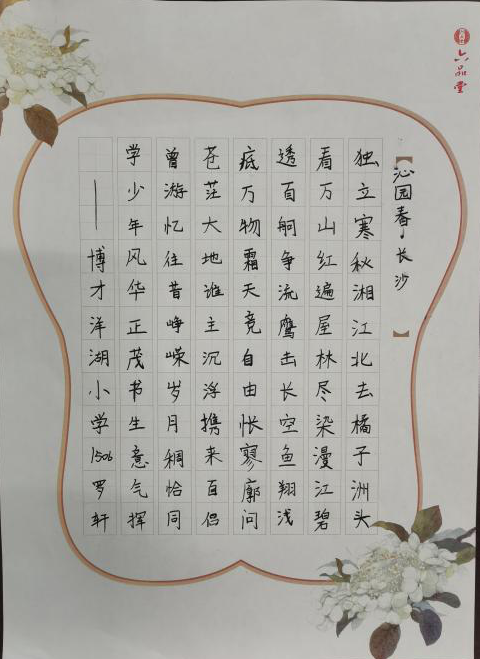 【沁园春·长沙】
独立寒秋湘江北去橘子洲头
看万山红遍层林尽染漫江碧
透百舸争流鹰击长空鱼翔浅
底万物霜天竞自由怅寥廓问
苍茫大地谁主沉浮携来百侣
曾游忆往昔峥嵘岁月稠恰同
学少年风华正茂书生意气挥
——博才洋湖小学1506罗轩
六品堂